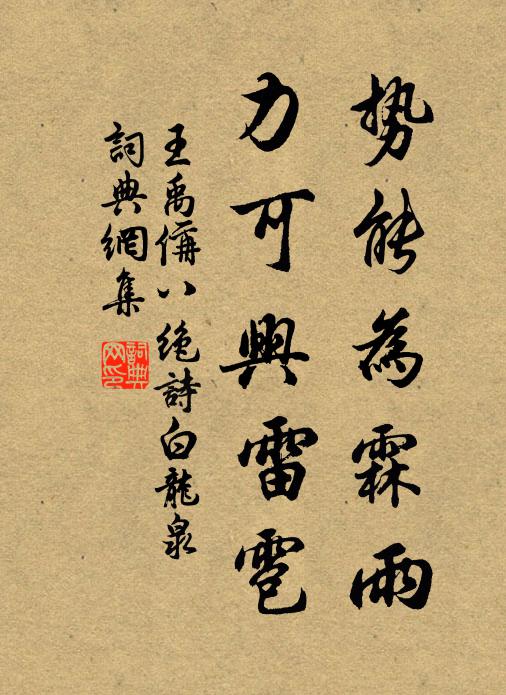 势能為霖雨
力可興雷雹
王禹偁八绝詩白龍泉
詞典網集
詞典
网印